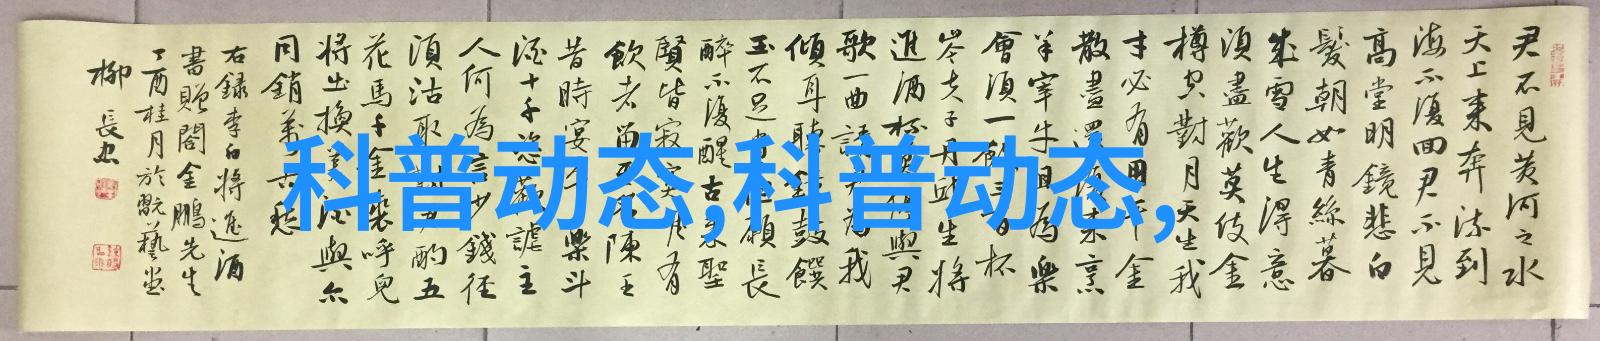 君不见黄河之水
天上来奔流到
海不復回君不見
高堂明鏡悲白
髮朝如青絲暮
成雪人生得意
須盡歡莫使金
樽空對月天生我
才必有用千金
散盡還復来烹
羊宰牛且為樂
會須一飲三百杯
岑夫子丹丘生將
進酒杯莫停與君
歌一曲請君為我
傾耳聽鐘鼓饌
玉不足貴但願長
醉不復醒古来聖
賢皆寂寞惟有
飲者留其名陳王
昔時宴平樂斗
酒十千恣歡謔主
人何為言少錢徑
須沽取對君酌五
花馬千金裘呼兒
將出換美酒與尔
同銷萬古愁
右録李白將進酒
書贈閤金鵬先生
丁酉桂月於翫藝堂
柳長忠
科普动态,科普动态,